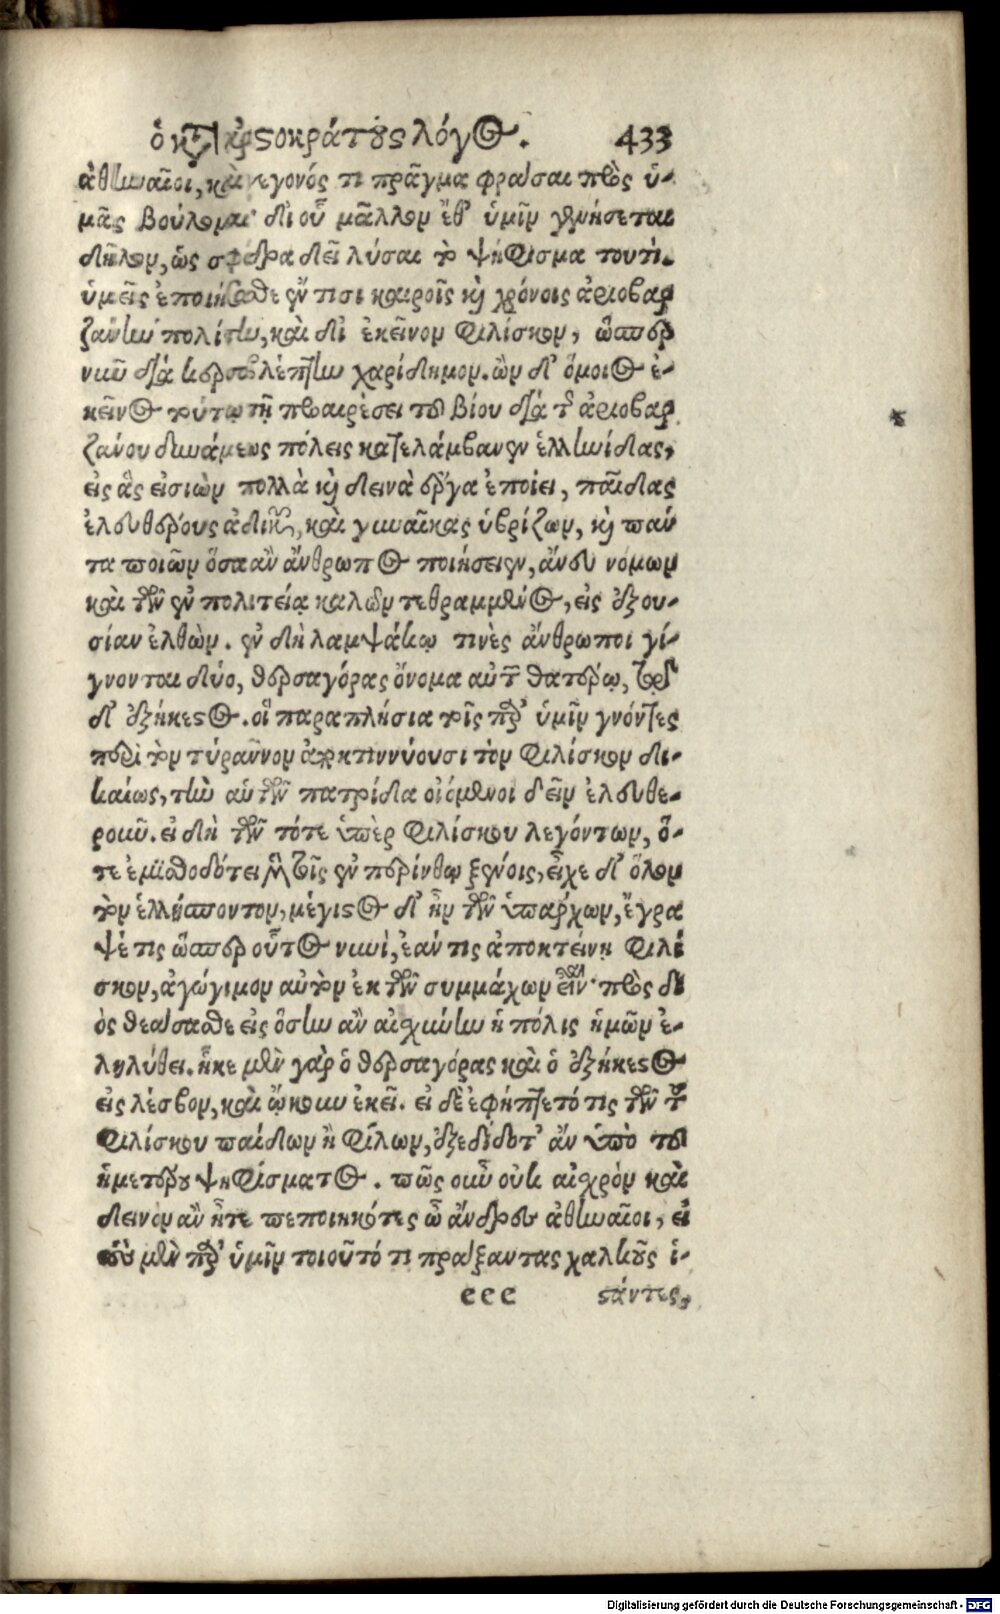 ὁ κατ' ἀριστοκράτους λόγος. 433
ἀθηναῖοι, καὶ γεγονός τι πρᾶγμα φράσαι πρὸς ὑ-
μᾶς βούλομαι δι' οὗ μᾶλλον ἔθ' ὑμῖν γενήσεται
δῆλον, ὡς σφόδρα δεῖ λύσαι τὸ ψήφισμα τουτί.
ὑμεῖς ἐποιήσασθε ἔν τισι καιροῖς καὶ χρόνοις ἀριοβαρ
ζάνην πολίτην, καὶ δι' ἐκεῖνον φιλίσκον, ὥσπερ
νῦν διὰ κερσοβλέπτην χαρίδημον. ὢν δ' ὅμοιος ἐ-
κεῖνος τούτῳ τῇ προαιρέσει τοῦ βίου διὰ τῆς ἀριοβαρ
ζάνου δυνάμεως πόλεις κατελάμβανεν ἑλληνίδας,
εἰς ἃς εἰσιὼν πολλὰ καὶ δεινὰ ἔργα ἐποίει, παῖδας
ἐλευθέρους ἀδικῶν, καὶ γυναῖκας ὑβρίζων, καὶ πάν
τα ποιῶν ὅσα ἂν ἄνθρωπος ποιήσειεν, ἄνευ νόμων
καὶ τῶν ἐν πολιτείᾳ καλῶν τεθραμμένος, εἰς ἐξου-
σίαν ἐλθών. ἐν δὴ λαμψάκῳ τινὲς ἄνθρωποι γί-
γνονται δύο, θερσαγόρας ὄνομα αὐτῶν θατέρῳ, τῷ
δ' ἐξήκεστος. οἳ παραπλήσια τοῖς παρ' ὑμῖν γνόντες
περὶ τῶν τυράννων ἀποκτιννύουσι τὸν φιλίσκον δι-
καίως, τὴν αὑτῶν πατρίδα οἰόμενοι δεῖν ἐλευθε-
ροῦν. εἰ δὴ τῶν τότε ὑπὲρ φιλίσκου λεγόντων, ὅ-
τε ἐμισθοδότει μὲν τοῖς ἐν περίνθῳ ξένοις, εἶχε δ' ὅλον
τὸν ἑλλήσποντον, μέγιστος δ' ἦν τῶν ὑπάρχων, ἔγρα
ψέ τις ὥσπερ οὗτος νυνὶ, ἐάν τις ἀποκτείνῃ φιλί
σκον, ἀγώγιμον αὐτὸν ἐκ τῶν συμμάχων εἶναι· πρὸς δι
ὸς θεάσασθε εἰς ὅσην ἂν αἰσχύνην ἡ πόλις ἡμῶν ἐ-
ληλύθει. ἧκε μὲν γὰρ ὁ θερσαγόρας καὶ ὁ ἐξήκεστος
εἰς λέσβον, καὶ ᾤκουν ἐκεῖ. εἰ δὲ ἐφήπτετό τις τῶν τοῦ
φιλίσκου παίδων ἢ φίλων, ἐξεδίδοτ' ἂν ὑπὸ τοῦ
ἡμετέρου ψηφίσματος. πῶς οὖν οὐκ αἰσχρὸν καὶ
δεινὸν ἂν ἦτε πεποιηκότες ὦ ἄνδρες ἀθηναῖοι, εἰ
τοὺς μὲν παρ' ὑμῖν τοιοῦτό τι πράξαντας χαλκοῦς ἱ-
eee στάντες,
Digitalisierung gefördert durch die Deutsche Forschungsgemeinschaft - DFG